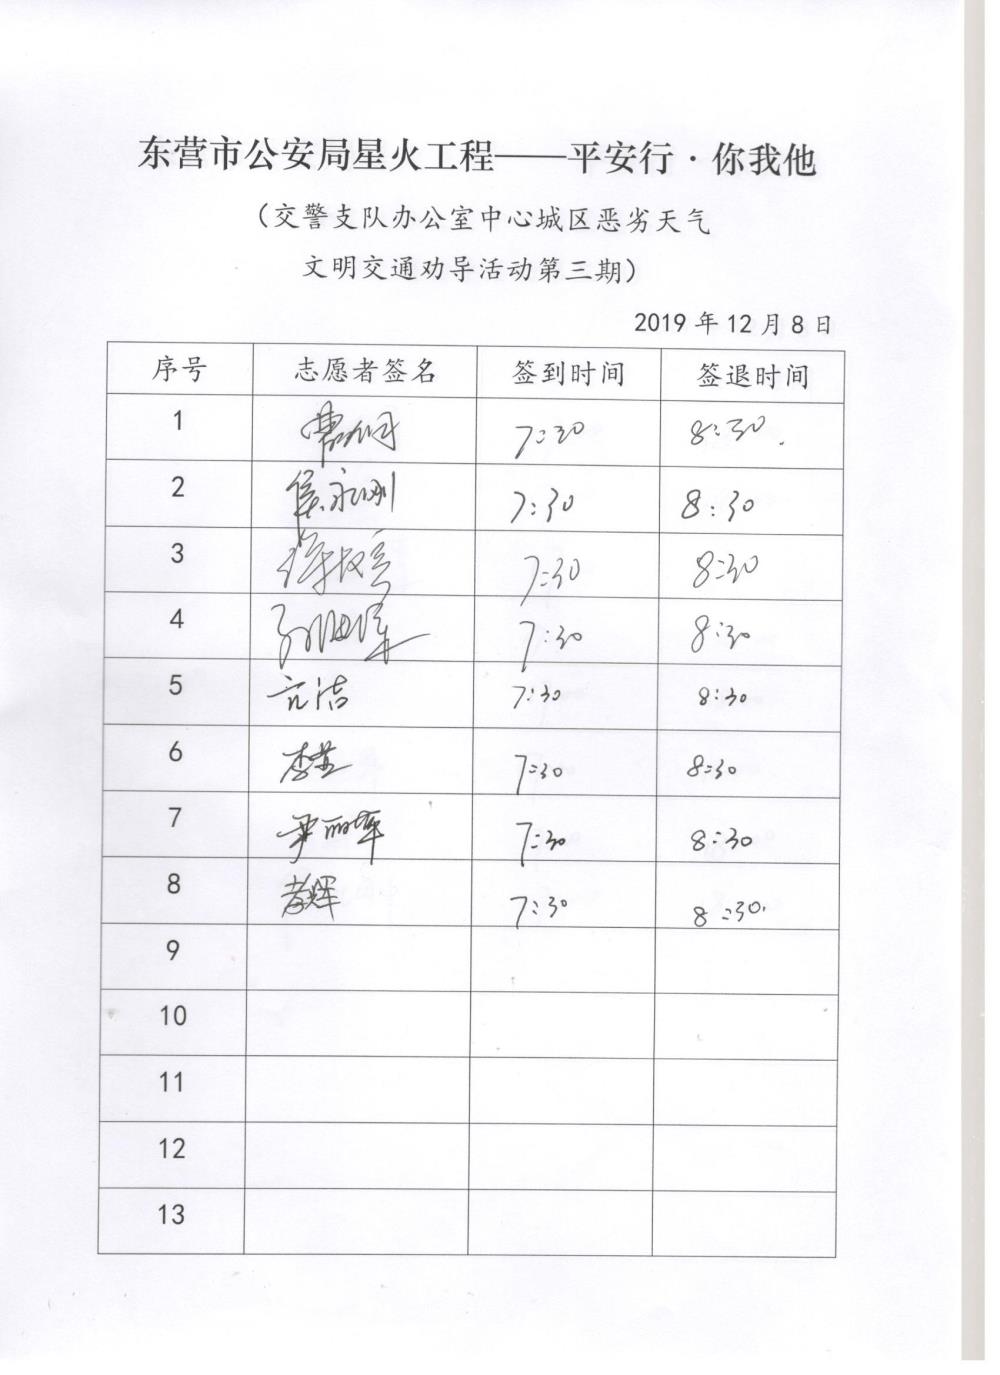 东营市公安局星火工程——平安行·你我他
（交警支队办公室中心城区恶劣天气
文明交通劝导活动第三期）
2019 年 12 月 8 日
序号 志愿者签名 签到时间 签退时间
1 7:30 8:30
2 侯永刚 7:30 8:30
3 7:30 8:30
4 7:30 8:30
5 亓洁 7:30 8:30
6 7:30 8:30
7 尹丽萍 7:30 8:30
8 7:30 8:30
9
10
11
12
13